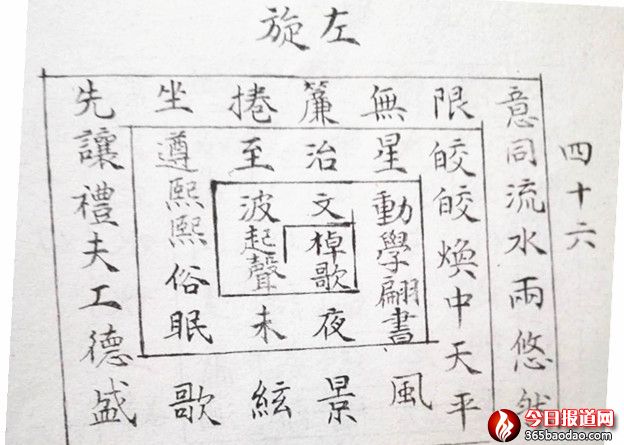 左旋
四十六
意同流水雨悠然
限皎皎煥中天平
無星動學翩書風
簾治文棹歌夜景
捲至波起聲未絃
坐遵熙熙俗眠歌
先讓禮夫工德盛
今日报道网
365baodao.com